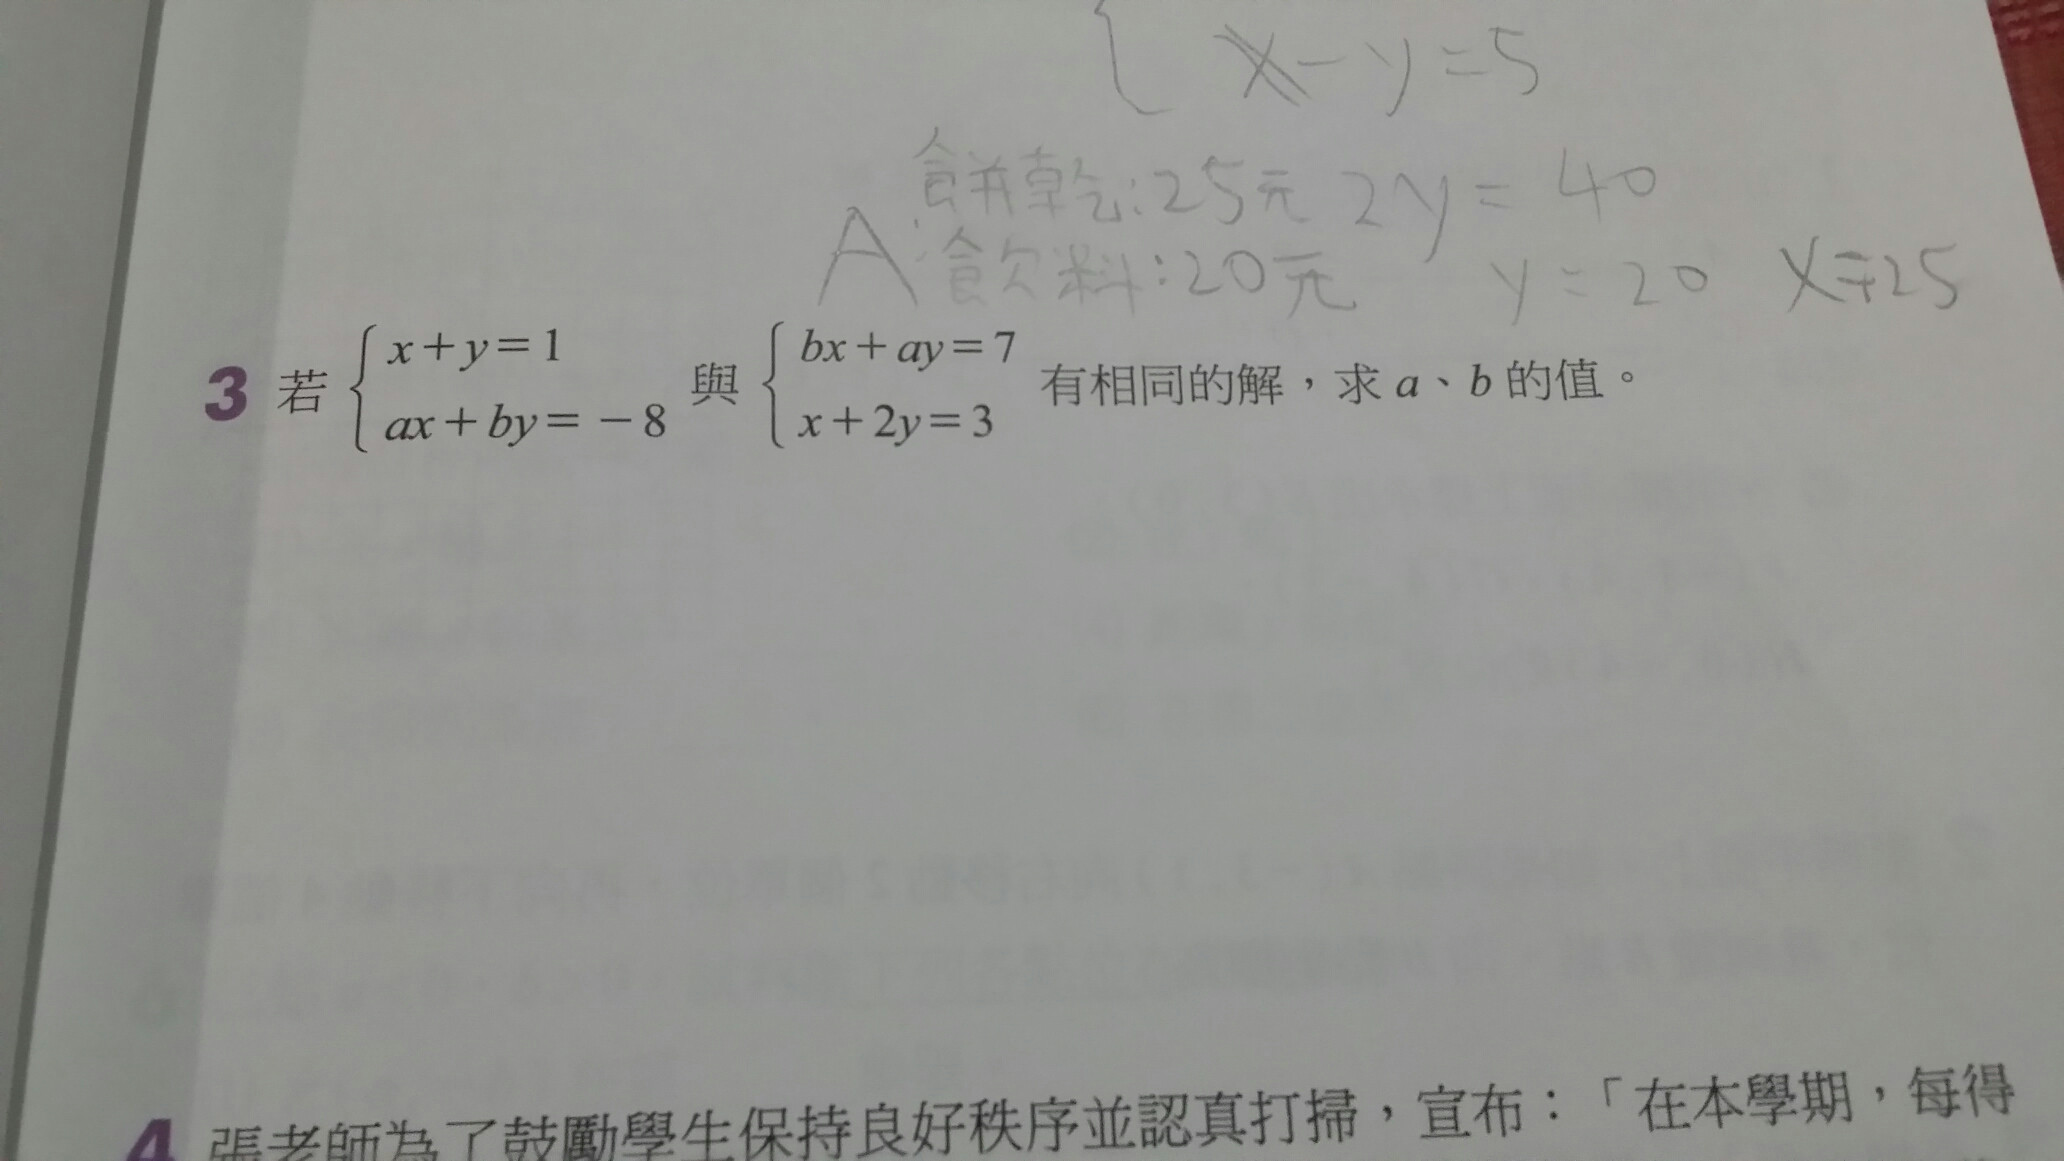 x－y＝5
餅乾：25元 2y＝40
A：飲料：20元 y＝20 x＝25
3 若 { x＋y＝1 與 { bx＋ay＝7 有相同的解，求 a、b 的值。
ax＋by＝－8 x＋2y＝3
4 張老師為了鼓勵學生保持良好秩序並認真打掃，宣布：「在本學期，每得